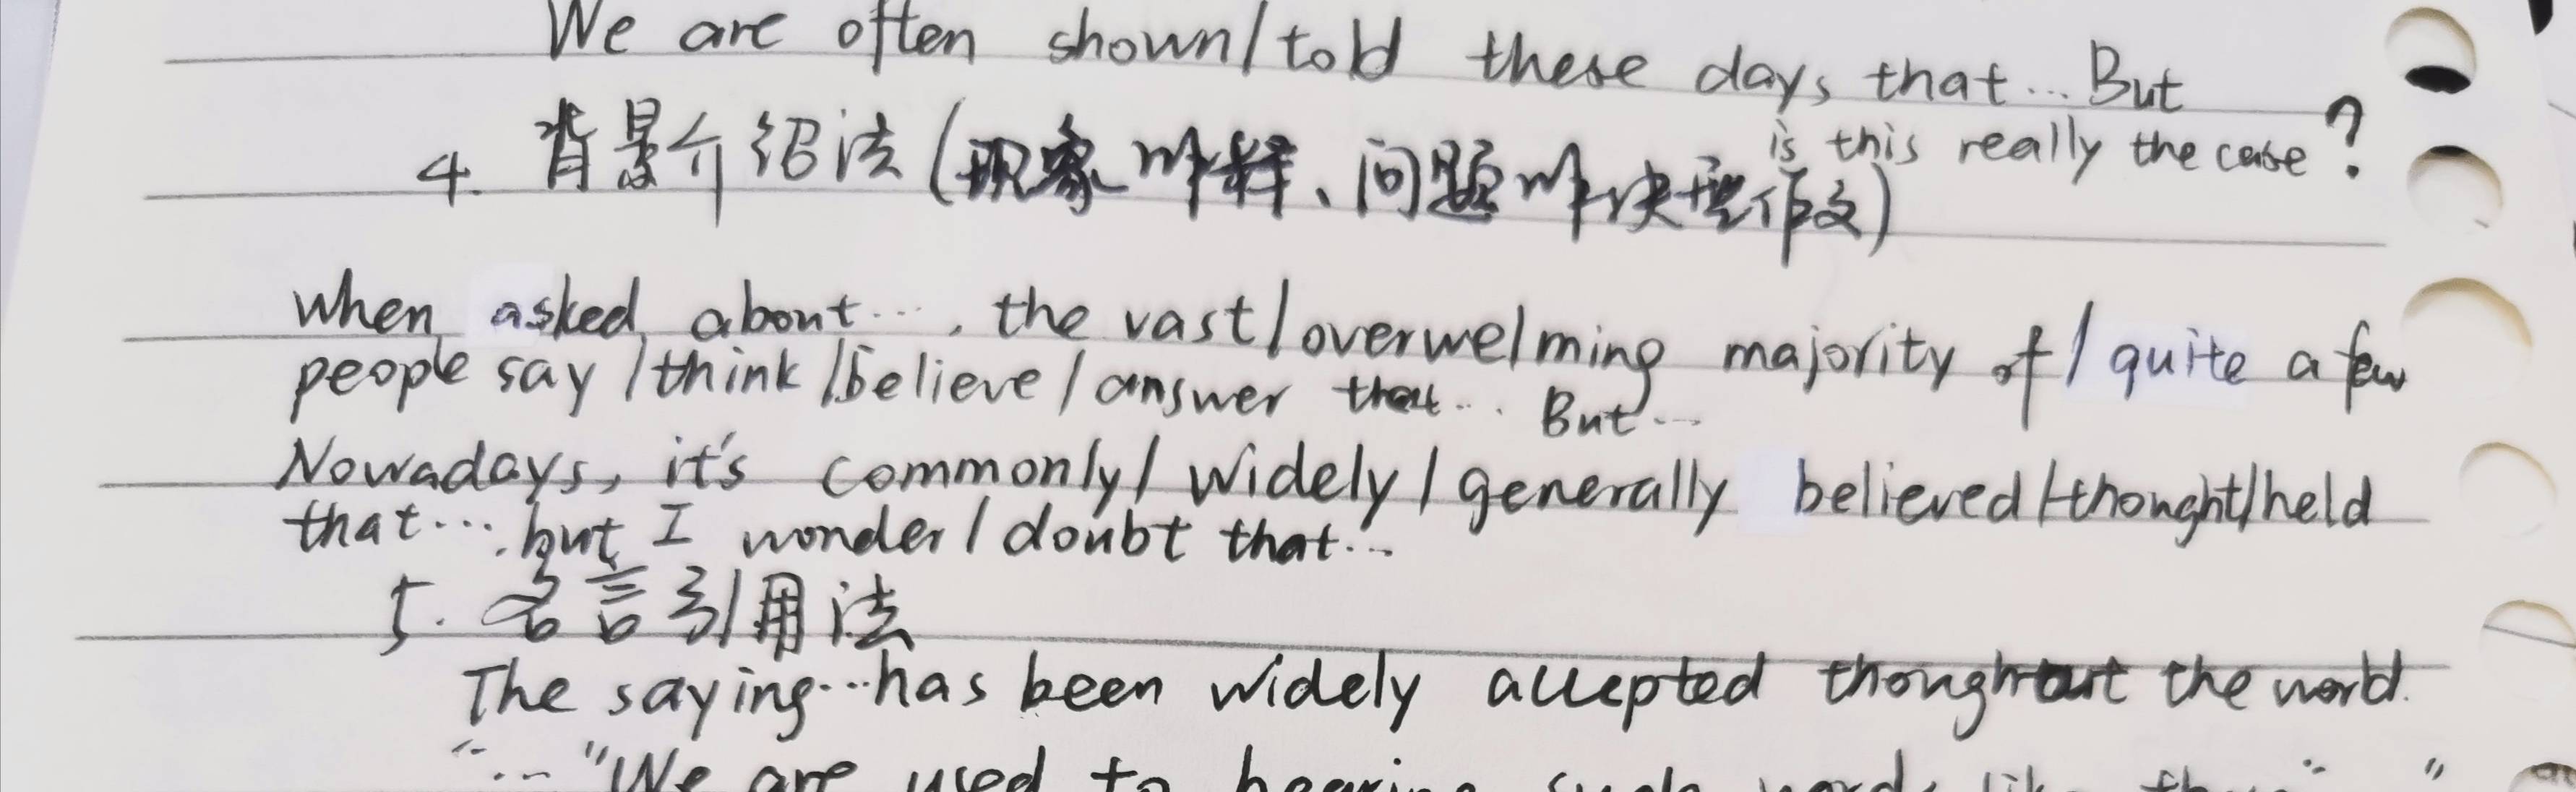 We are often shown/told these days that... But
is this really the case?
4. 背景介绍法(现象解释、问题解决型作文)
When asked about..., the vast/overwelming majority of/quite a few
people say/think/believe/answer that... But...
Nowadays, it's commonly/widely/generally believed/thonght/held
that... but I wonder/doubt that...
5. 名言引用法
The saying...has been widely accepted thonghout the world.
"..." We are used to hearing such words like